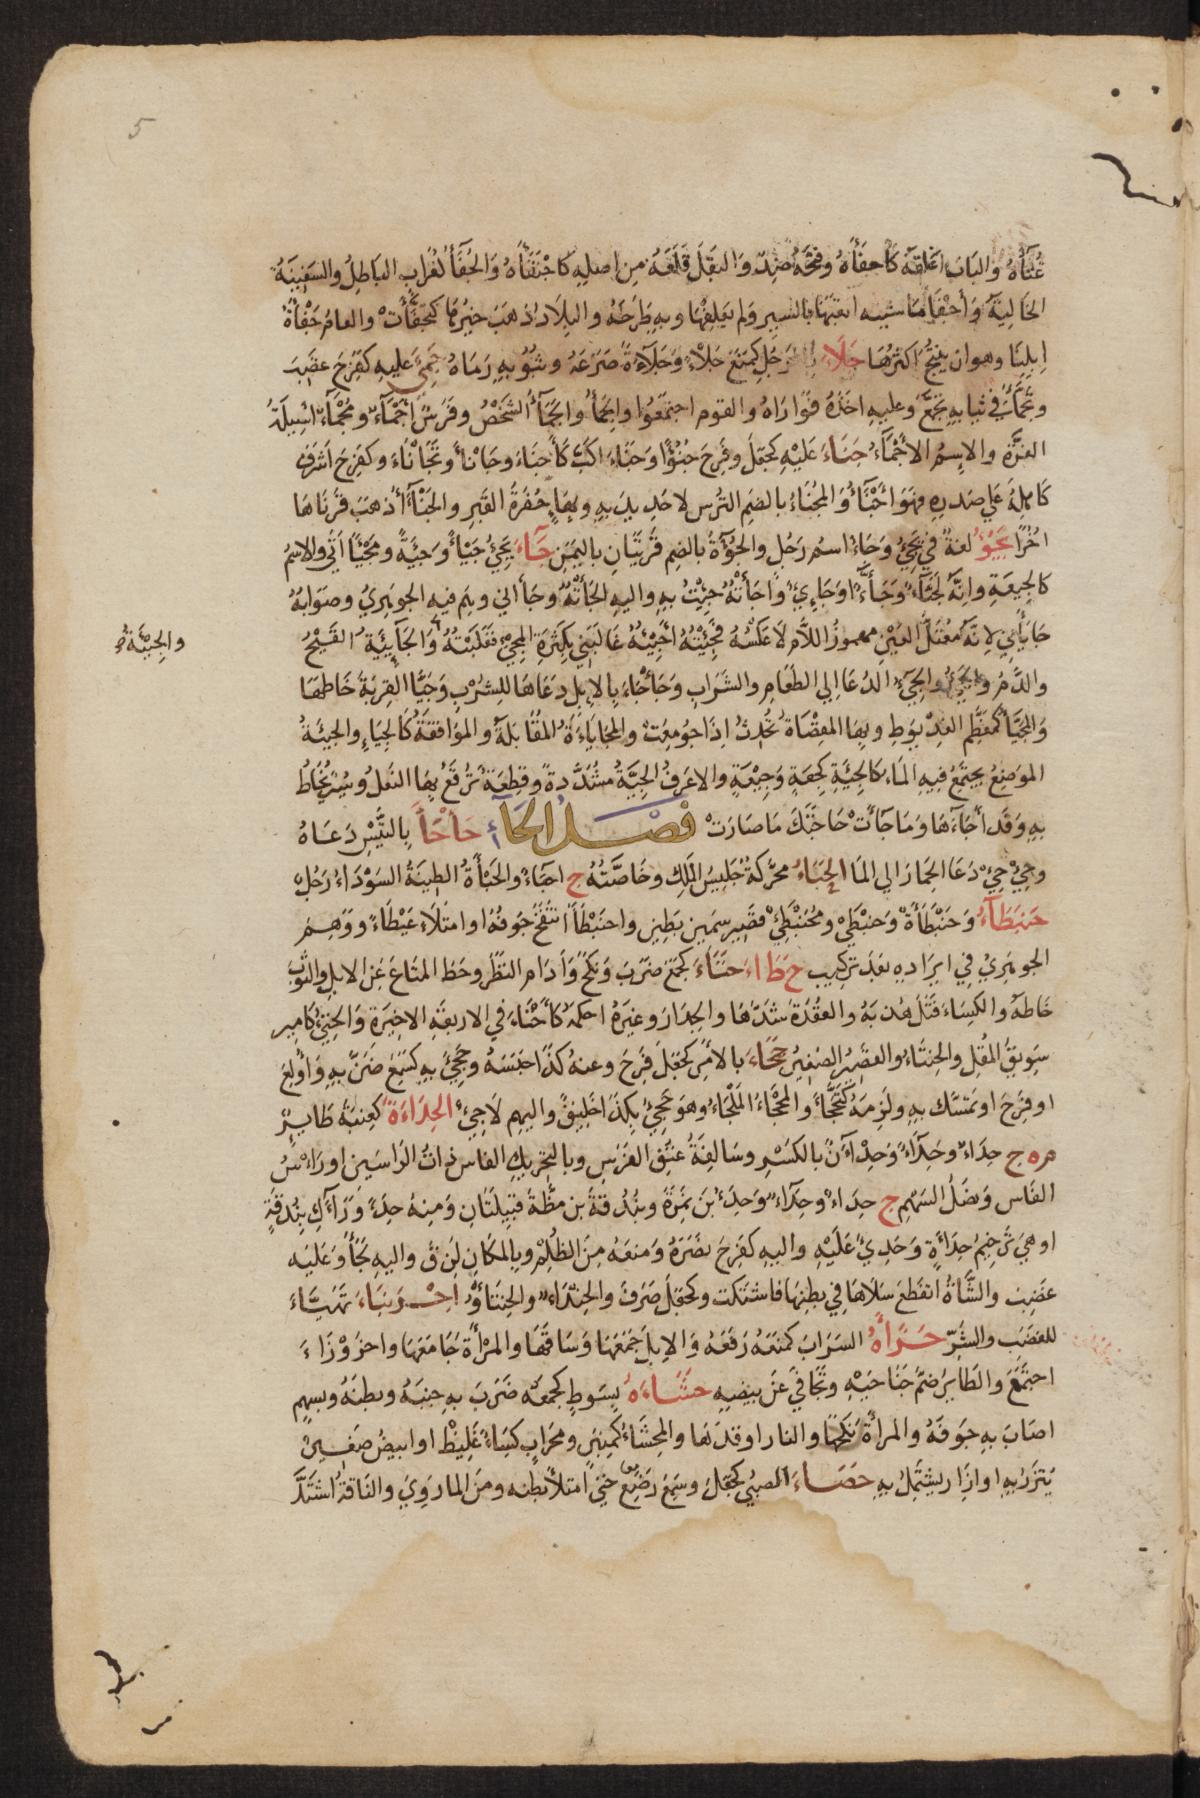 5
غُثَآءَهُ والبَابَ اغلقَهُ كَأَجفَأَهُ وفتَحَهُ ضِدٌّ وَالبَقْلَ قَلَعَهُ مِن اصلِهِ كَاجْتَفَأَهُ وَالجُفَآءُ كغُرَابٍ البَاطِلُ والسَفِينَةُ
الخَالِيَةُ وَأَجْفَأَ مَاشيتَه اتعَبَهَا بالسَيرِ وَلم يَعلِفْهَا وبِهِ طَرَحَهُ والبِلَادُ ذهَبَ خَيرُهَا كتَجَفَّأَتْ والعَامُ جَفْأَةُ
اِبِلِنَا وهو ان يُنْتَجَ اكثرُهَا جَلَاءَ بالرَجُلِ كمَنَعَ جَلْاً وَجَلَآءَةً صَرَعَهُ وبثَوْبِهِ رَمَاهُ جَمِئَ عَلَيهِ كفَرِحَ غضِبَ
وتَجَمَّأَ في ثيابِهِ تجَمَّعَ وعليهِ اخَذَهُ فَوَارَاهُ والقوم اجتمَعُوا والجَمَأُ والجَمَآءُ الشَخْصُ وفَرَسٌ أَجْمَأُ ومُجْمَأٌ اسِيلَةُ
الغُرَّة والاِسمُ الاجْمَآءُ جَنَاءَ عَلَيْهِ كجَعَلَ وفَرِحَ جُنُوْءًا وَجَنَاءً اكَبَّ كَأَجنَاءَ وجَانَأَ وتَجَانَاءَ وكفَرِحَ اشرَفَ
كَاهِلُهُ عَلى صَدرِهِ فهوَ اَجْنَأُ وَالمُجْنَاءُ بالضَمِ التُرس لا حَدِيدَ بِهِ وبِهَاءٍ حُفرَةُ القَبرِ والجَنْآءُ ذهَبَ قَرنَاهَا
اُخُرًا يَجُوْءُ لغةٌ في يَجِئُ وَجَاءٌ اسمُ رَجُلٍ والجُوْءَةُ بالضمِ قَريَتَانِ باليَمَنِ جَآءَ يَجِئُ جَيْأً وَجَيْئَةً ومَجِيْئًا اَتَى والاسمُ
كالجِيعَةِ وانّهُ لَجَيَّاءٌ وَجَأَّءٌ وَجَاءِيٌ وَاجَأتُهُ جِئْتُ بِهِ واليهِ الجَأتُهُ وجَأاني وهِمَ فيهِ الجوهَرِيُ وصَوَابُهُ
جَايَأَنِي لاِنّهُ مُعْتَلُّ العَيْنِ مهموزُ اللَّام لَا عَكْسُهُ فجِئْتُهُ اَجِيْئُهُ غَالبَنِي بِكَثْرَةِ المَجِيْ فغَلَبْتُهُ وَالجَآئِيَةُ القَيْحُ
والجِيْئَةُ صح
والدَّمُ والجَيْئُ والجِيْءُ الدُعَا اِلي الطَعَامِ والشَرَابِ وَجَأجَاءَ بِالاِبِلِ دَعَاهَا للشُرْبِ وَجَيَّأَ القِرْبَةَ خَاطهَا
وَالمُجَيَّأُ كمُعَظَّمٍ العِذْيَوطِ وبِهَا المُفضَاةُ تُحْدِثُ اِذَا جومِعَتْ والمُجَايَاءَةُ المُقَابَلَةُ والمُوَافقَةُ كَالجِيَاءِ والجَيْئَةُ
المَوضِعُ يجتَمِعُ فيهِ المَاء كالجِئَةِ كجِعَةٍ وَجِيْعَةٍ والاعرَفُ الجِيَّةُ مُشدَّدةً وقِطعَةٌ تُرقَعُ بِهَا النَعلُ وسَيرٌ يُخَاطُ
بِهِ وَقد أجَاءَهَا وَمَا جَاءَتْ حَاجَتَكَ مَاصَارَتْ فَصْلُ الحَآءِ حَأْحَأَ بِالتَّيْسِ دَعَاهُ
وحِئْ حِئْ دَعَا الحِمَارَ الي المَا الحَبَاءُ محرَّكةً جَليسُ المَلِكِ وخَاصَّتُهُ ج احبَاءٌ والحَبْأَةُ الطِينَةُ السَوْدَاءُ رَجُلٌ
حَبَنطَآءٌ وَحَبَنْطَأَةٌ وَحَبَنْطَيْ ومُحْبَنْطِئٌ قصَيرٌ سمَينٌ بَطِينٌ واحبَنْطَأَ انتَفَخَ جَوفُهُ اوامتَلَاءَ غَيْظًا ووَهِمَ
الجوهَرِيُ فِي ايرَادِهِ بَعدَ تركِيبِ ح ط اءَ حَتَاءَ كجَمَعَ ضَرَبَ وَنكَحَ وَأدَام النَظَرَ وحَطَّ المتَاعَ عَنِ الابل والثَوْبَ
خَاطَهُ والكِسَاءَ فتَلَ هُدْبَهُ والعُقْدَةَ شدّهَا والجِدَارَ وغيرَهُ احكمَهُ كَأَحْتَاءَ في الاربعَةِ الاخِيرَةِ وَالحَتِيْءُ كأمِيرٍ
سَوِيقُ المُقلِ والحِنتَاءُ والقصَيرُ الصَغِيرُ حَجَاءَ بالامرِ كجَعَلَ فرِحَ وعنهُ كذَا حبَسَهُ وحَجِئَ بِهِ كسَمِعَ ضَنَّ بِهِ وَأُوْلِعَ
اوفَرِحَ اوتمَسَّك بهِ ولَزِمَهُ كتَحَجَّأَ والمَحْجَاءُ المَلْجَاءُ وهوَ حَجِئٌ بكَذَا خَلِيْقٌ واليهِم لَاجِيءٌ الحِدَاءَةُ كعِنَبَةٍ طَايِرٌ
م ه ج حِدَاءٌ وحِدَآءٌ وَحِدْآءَنٌ بالكَسْرِ وسَالِفَةُ عُنُقِ الفرَسِ وبِالتحرِيكِ الفاس ذاتُ الرَاسَينِ اورَاءْسُ
الفَاس وَنصَلُ السَهْمِ ج حِدَاءٌ وحِدَآءٌ وَحِدَءُ بنُ نَمِرَةَ وبُنْدُقةُ بن مَظَّةَ قبِيلَتَانِ وَمِنهُ حِدَءْ وَرَآءَكِ بُنْدقَةٌ
اوهِيَ تَرخيمُ حِدَاءَةٍ وَحَدِيءَ عَلَيْهِ واليهِ كفَرِحَ نصَرَهُ وَمنعَهُ مِنَ الظُلمِ وبالمَكَانِ لَزِقَ واليهِ لجَأَ وَعَليه
غضِبَ والشَّاةُ انقطَعَ سَلَاهَا فِي بطنِهَا فاشتَكت وكجَعَلَ صَرَفَ والحِنْدَاءُ والحِنتَاؤُ احْـرَنبَاءَ تهَيَّاءَ
للغضَبِ والشَرِّ حَـزَاءَهُ السَرَابُ كمنَعَهُ رَفعَهُ وَالابِلَ جَمَعَهَا وَسَاقَهَا والمَرْأَةَ جَامَعَهَا واحزَوْزَاءَ
اجتَمَعَ والطَايرُ ضَمَّ جَنَاحَيْهِ وتجَافَى عَنْ بيضِهِ حشَأَهُ بسَوطٍ كجمعَه ضَرَبَ بهِ جنبَهُ وبطنَهُ وبسهمٍ
اصَابَ بهِ جَوفَهُ والمرأَةَ نكَحَهَا والنار اوقدَهَا والمِحشَاءُ كمِنبَرٍ ومحرَابٍ كِسَاءٌ غَلِيظٌ اوابيضُ صَغِيرٌ
يُتزَرُ بهِ اوازَارٌ يشتَمِلُ بِهِ حَصَـاءَ الصبيُ كجَعَلَ وسَمِعَ رَضِعَ حتي امتلأ بَطنه ومِنَ المارَوِيَ والنَاقةُ اشتَدَّ